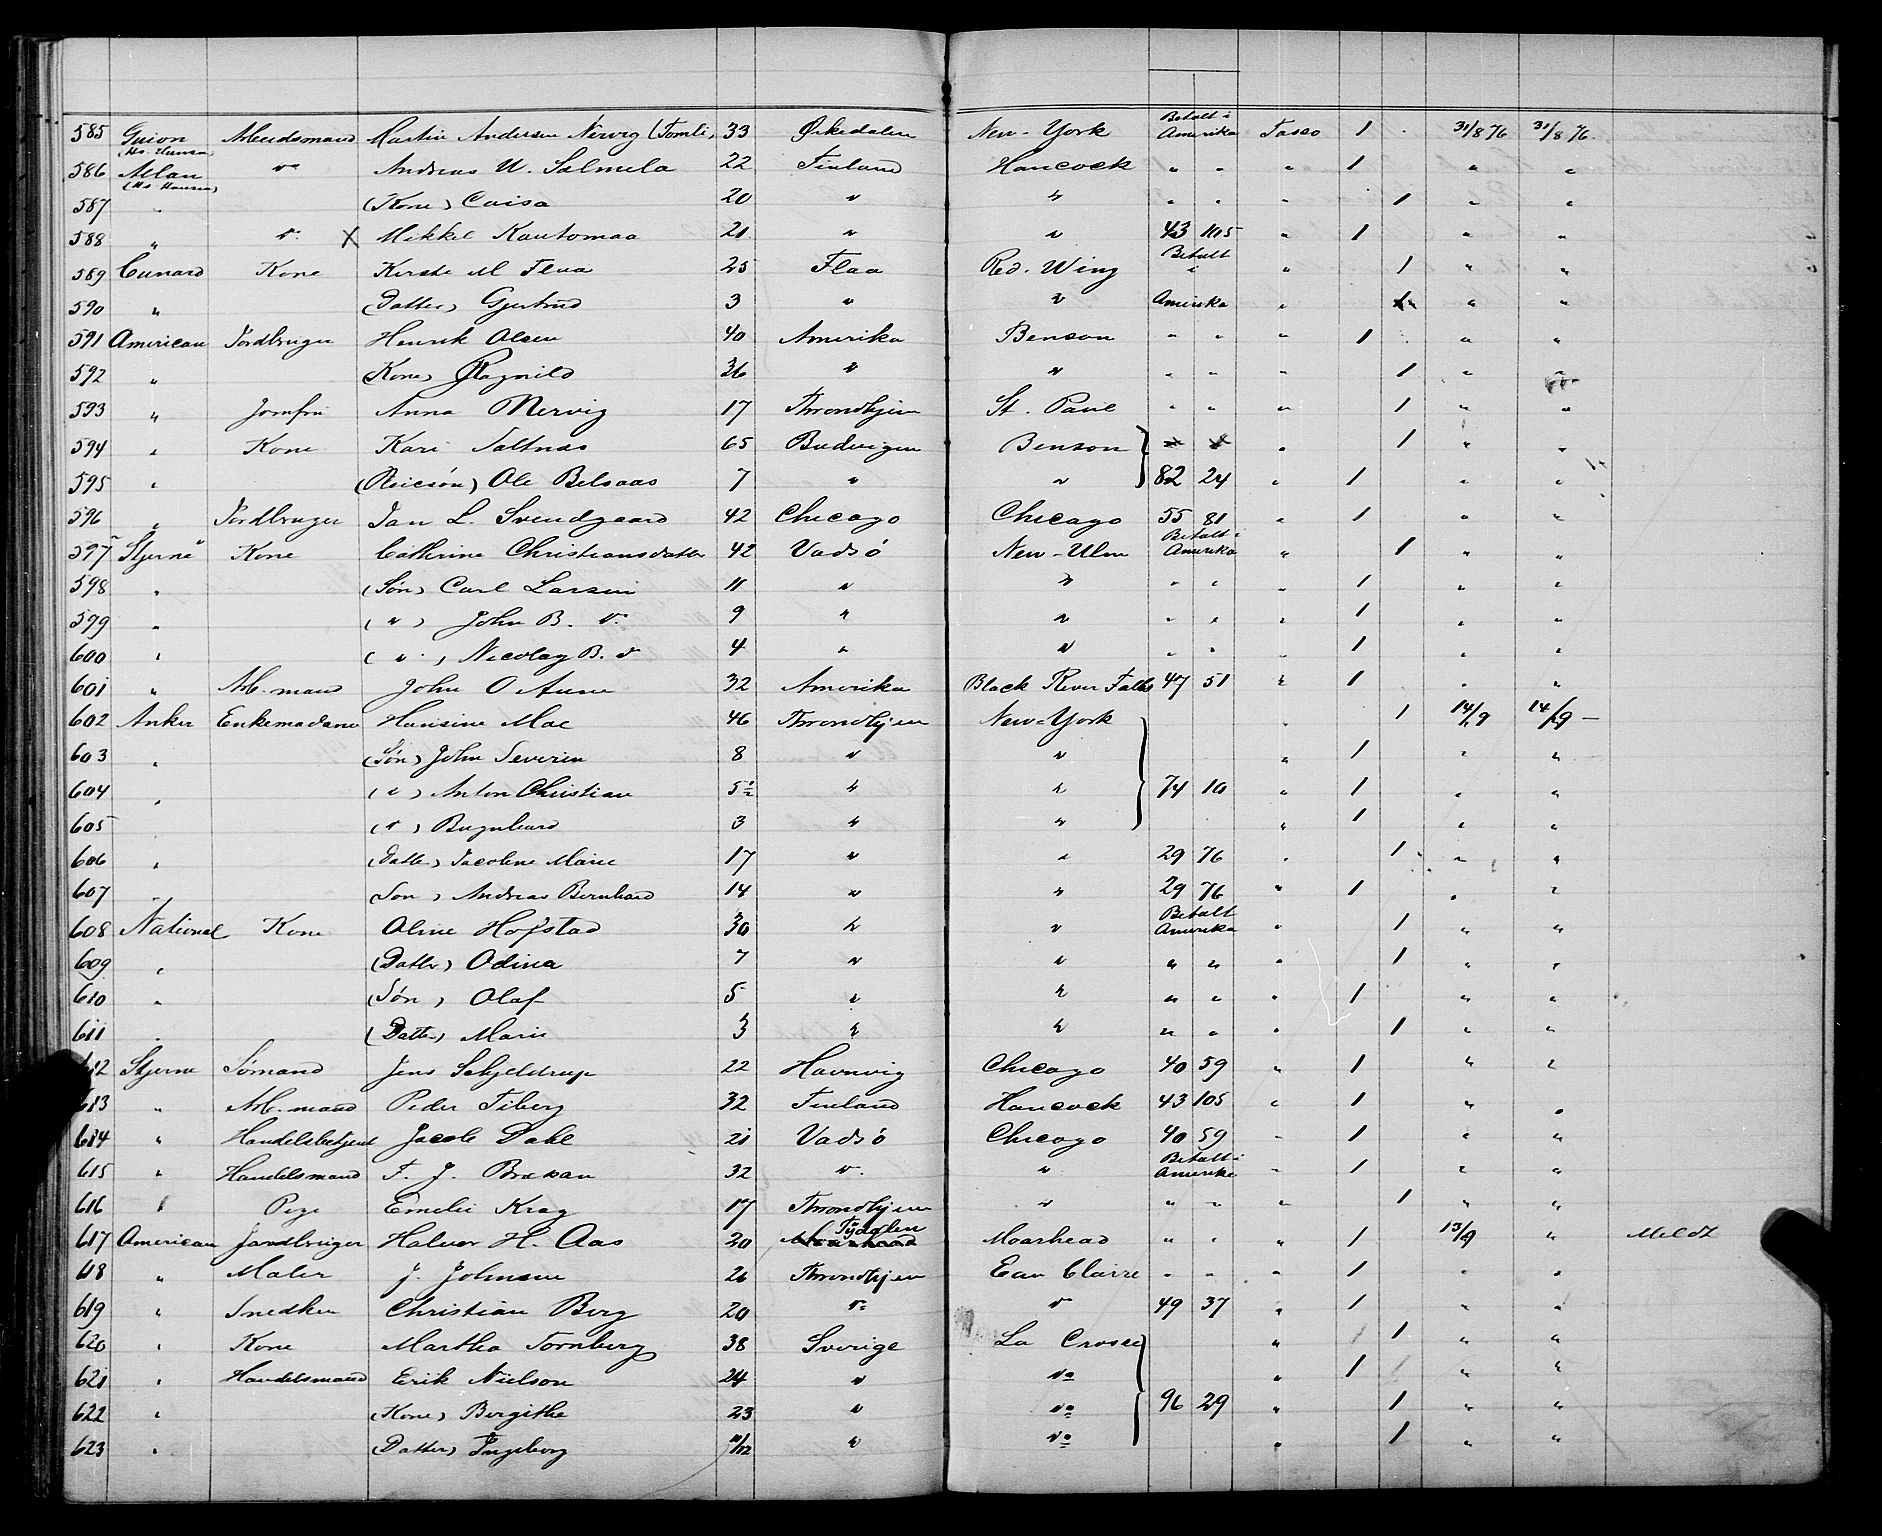 585 Guion Arbeidsmand Martin Andersen Nervig (Tomli) 33 Orkedalen New-York Betalt i Amerika Tasso 1 31/8 76 31/8 76.
(Hs. Hansen)
586 Allan " Andreas W. Salmela 22 Finland Hancock " " " 1 " "
(Hs Hansen)
587 " (Kone) Caisa 20 " " " " " 1 " "
588 " " X Mikkel Kautomaa 21 " " 43 105 " 1 " "
589 Cunard Kone Kirsti M Flaa 25 Flaa Red. Wing Betalt i " 1 " "
590 " (Datter) Gjertrud 3 " " Amerika " 1 " "
591 American Jordbruger Henrik Olsen 40 Amerika Benson " " " 1 " "
592 " (Kone) Ragnild 36 " " " " " 1 " "
593 " Jomfru Anna Mervig 17 Throndhjem St. Paul " " " 1 " "
594 " Kone Kari Saltnes 65 Budvigen Benson " 1 " "
595 " (Pleiesön) Ole Belsaas 7 " " 82 24 " 1 " "
596 " Jordbruger Jan L. Svendgaard 42 Chicago Chicago 55 81 " 1 " "
597 Stjerne Kone Cathrine Christiansdatter 42 Vadsö New-Ulm Betalt i Amerika " 1 " "
598 " (Søn) Carl Larsen 11 " " " " " 1 " "
599 " ( " ) John B. " 9 " " " " " 1 " "
600 " ( " ) Nicolay B. " 4 " " " " " 1 " "
601 " Arb. mand John O Aune 32 Amerika Black River Falls 47 51 " 1 " "
602 Anker Enkemadame Hansine Moe 46 Throndhjem New-York " 1 14/9 14/9 —
603 " (Søn) John Severin 8 " " " 1 " "
604 " ( " ) Anton Christian 5½ " " 74 10 " 1 " "
605 " ( " ) Bernhard 3 " " " 1 " "
606 " (Datter) Jacoline Marie 17 " " 29 76 " 1 " "
607 " Søn) Andreas Bernhard 14 " " 29 76 " 1 " "
608 National Kone Oline Hofstad 30 " " Betalt Amerika " 1 " "
609 " (Datter) Odina 7 " " " " " 1 " "
610 " (Søn) Olaf 5 " " " " " 1 " "
611 " (Datter) Marie 3 " " " " " 1 " "
612 Stjerne Sømand Jens Schjeldrup 22 Havnvig Chicago 40 59 " 1 " "
613 " Arb. mand Peder Tiberg 32 Finland Hancock 43 105 " 1 " "
614 " Handelsbetjent Jacob Dahl 21 Vadsö Chicago 40 59 " 1 " "
615 " Handelsmand F. J. Brækan 32 " " Betalt i Amerika " 1 " "
616 " Pige Emelie Krag 17 Throndhjem " " " " 1 " "
617 American Jordbruger Halvor H. Aas 20 Tydalen Moarhead " " " 1 13/9 " Meldt
618 " Maler J. Johnsen 26 Throndhjem Eau Clairre " " " 1 " "
619 " Snedker Christian Berg 20 " " 49 37 " 1 " "
620 " Kone Martha Tornberg 38 Sverige La Crosse " 1 " "
621 " Handelsmand Erik Nielson 24 " do " 1 " "
622 " (Kone) Bergithe 23 " do 96 29 " 1 " "
623 " (Datter) Ingeborg 11/12 " do " 1 " "